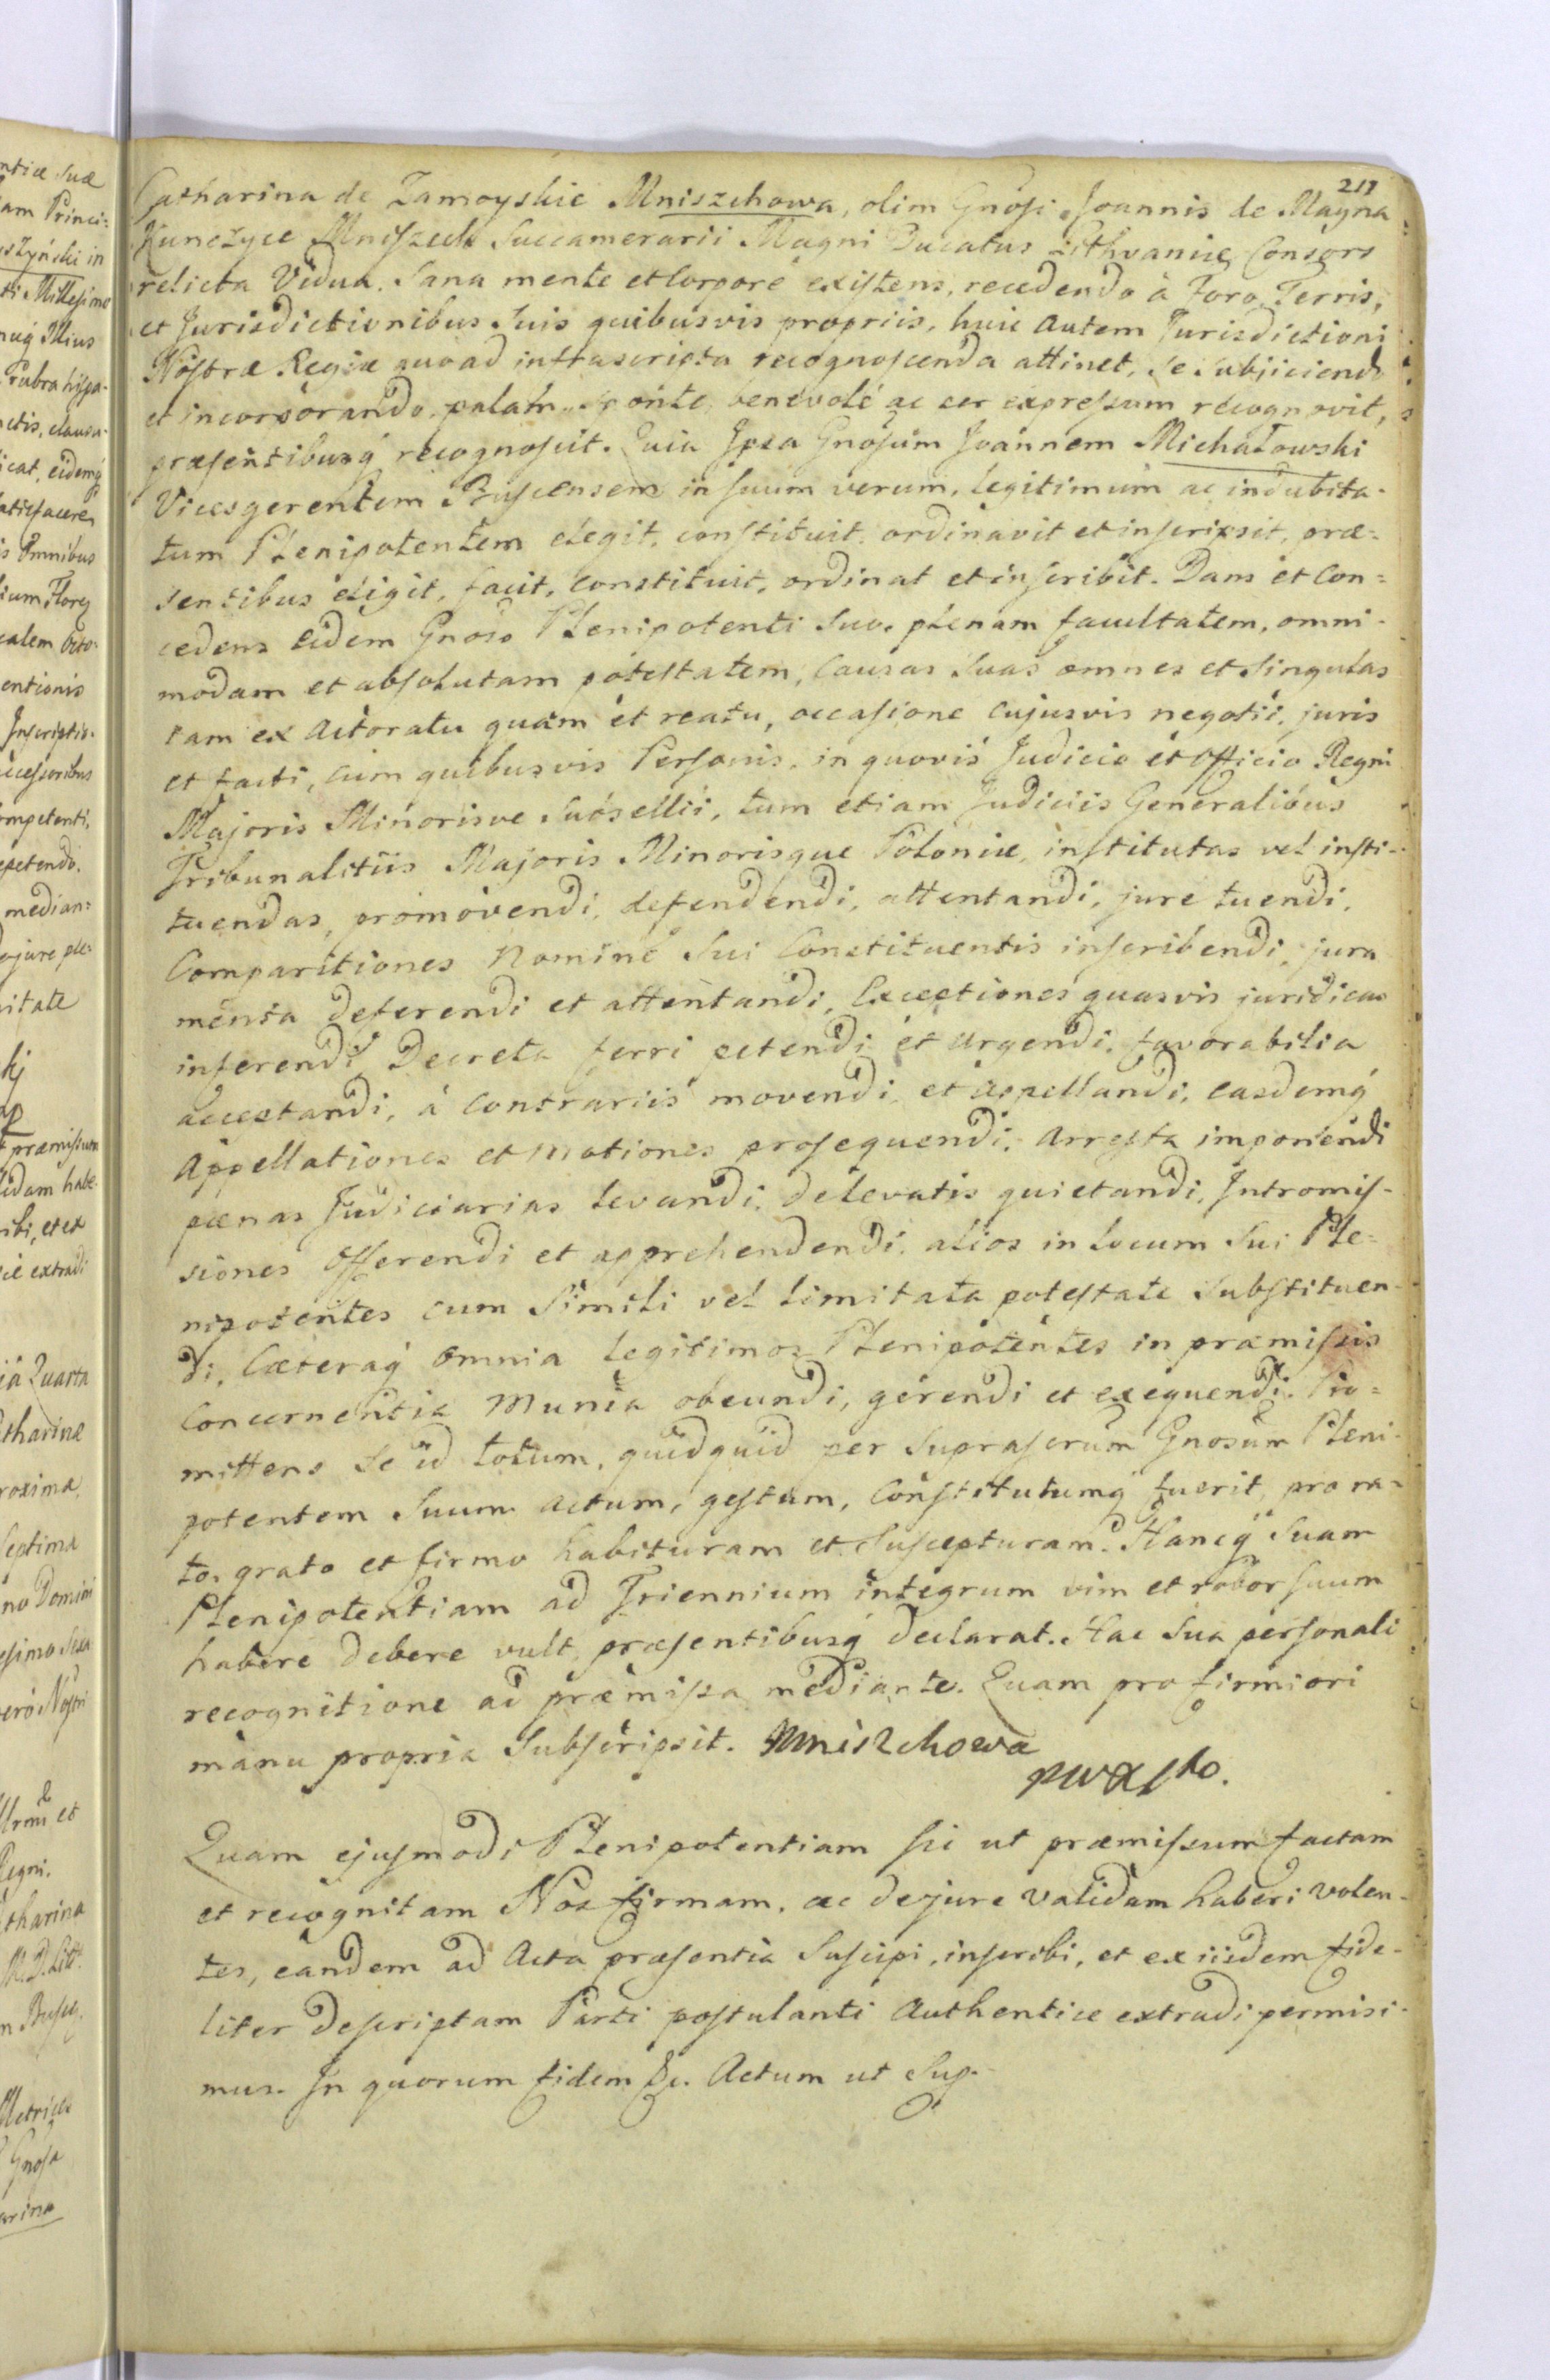 217
Catharina de Zamoyskie Mniszchowa, olim Gnosi Joannis de Magna
Kunczyce Mniszech Succamerarii Magni Ducatus Lithvaniæ Consors
relicta Vidua. Sana mente et Corpore existens, recedendo à Foro, Terris,
et Jurisdictionibus Suis quibusvis propriis, huic autem Jurisdictioni
Nostræ Regiæ quoad infrascripta recognoscenda attinet, se subjiciendo
et incorporando, palam, sponte, benevolé ac per expressum recognovit,
præsentibusq́ recognoscit. Quia Ipsa Gnosum Joannem Michałowski
Vicesgerentem Buscensem in suum verum, legitimum ac indubita-
tum Plenipotentem elegit, constituit, ordinavit et inscripsit, præ-
sentibus eligit, facit, constituit, ordinat et inscribit. Dans et Con-
cedens eidem Gnoso Plenipotenti Suo, plenam facultatem, omni-
modam et absolutam potestatem, Causas Suas omnes et Singulas
tam ex Actoratu quam et reatu, occasione cujusvis negotii, juris
et facti, cum quibusvis Personis, in quovis Judicio et Officio Regni
Majoris Minorisve Subsellii, tum etiam Judiciis Generalibus
Tribunalitiis Majoris Minorisque Poloniæ, institutas vel insti-
tuendas, promovendi, defendendi, attentandi, jure tuendi,
Comparitiones Nomine Sui Constituentis inscribendi, jura
menta deferendi et attentandi, Exceptiones quasvis juridicas
inferendi, Decreta ferri petendi et urgendi, favorabilia
acceptandi, à Contrariis movendi et appellandi, easdemq́
Appellationes et motiones prosequendi, Arresta imponendi
pænas Judiciarias levandi, de levatis quietandi, Intromis-
siones Offerendi et apprehendendi, alios in locum Sui Ple-
nipotentes cum Simili vel limitata potestate Substituen-
di, Cæteraq́ omnia legitimos Plenipotentes in præmissis
Concernentia Munia obeundi, gerendi et exequendi. Pro-
mittens Se id totum, quidquid per Suprascrūm Gnosum Pleni-
potentem Suum actum, gestum, Constitutumq́ fuerit, pro ra-
to, grato et firmo habituram et Suscepturam. Hancq́ Suam
Plenipotentiam ad Triennium integrum vim et robor suum
habere debere vult, præsentibusq́ declarat. Hac Sua personali
recognitione ad præmissa mediante. Quam pro firmiori
manu propria Subscripsit. Mniszchowa
Quam ejusmodi Plenipotentiam sic ut præmissum factam
et recognitam Nos firmam, ac de jure validam haberi volen-
tes, eandem ad Acta præsentia Suscipi, inscribi, et ex iisdem fide-
liter descriptam Parti postulanti Authentice extradi permisi-
mus. In quorum fidem &c. Actum ut Sup.